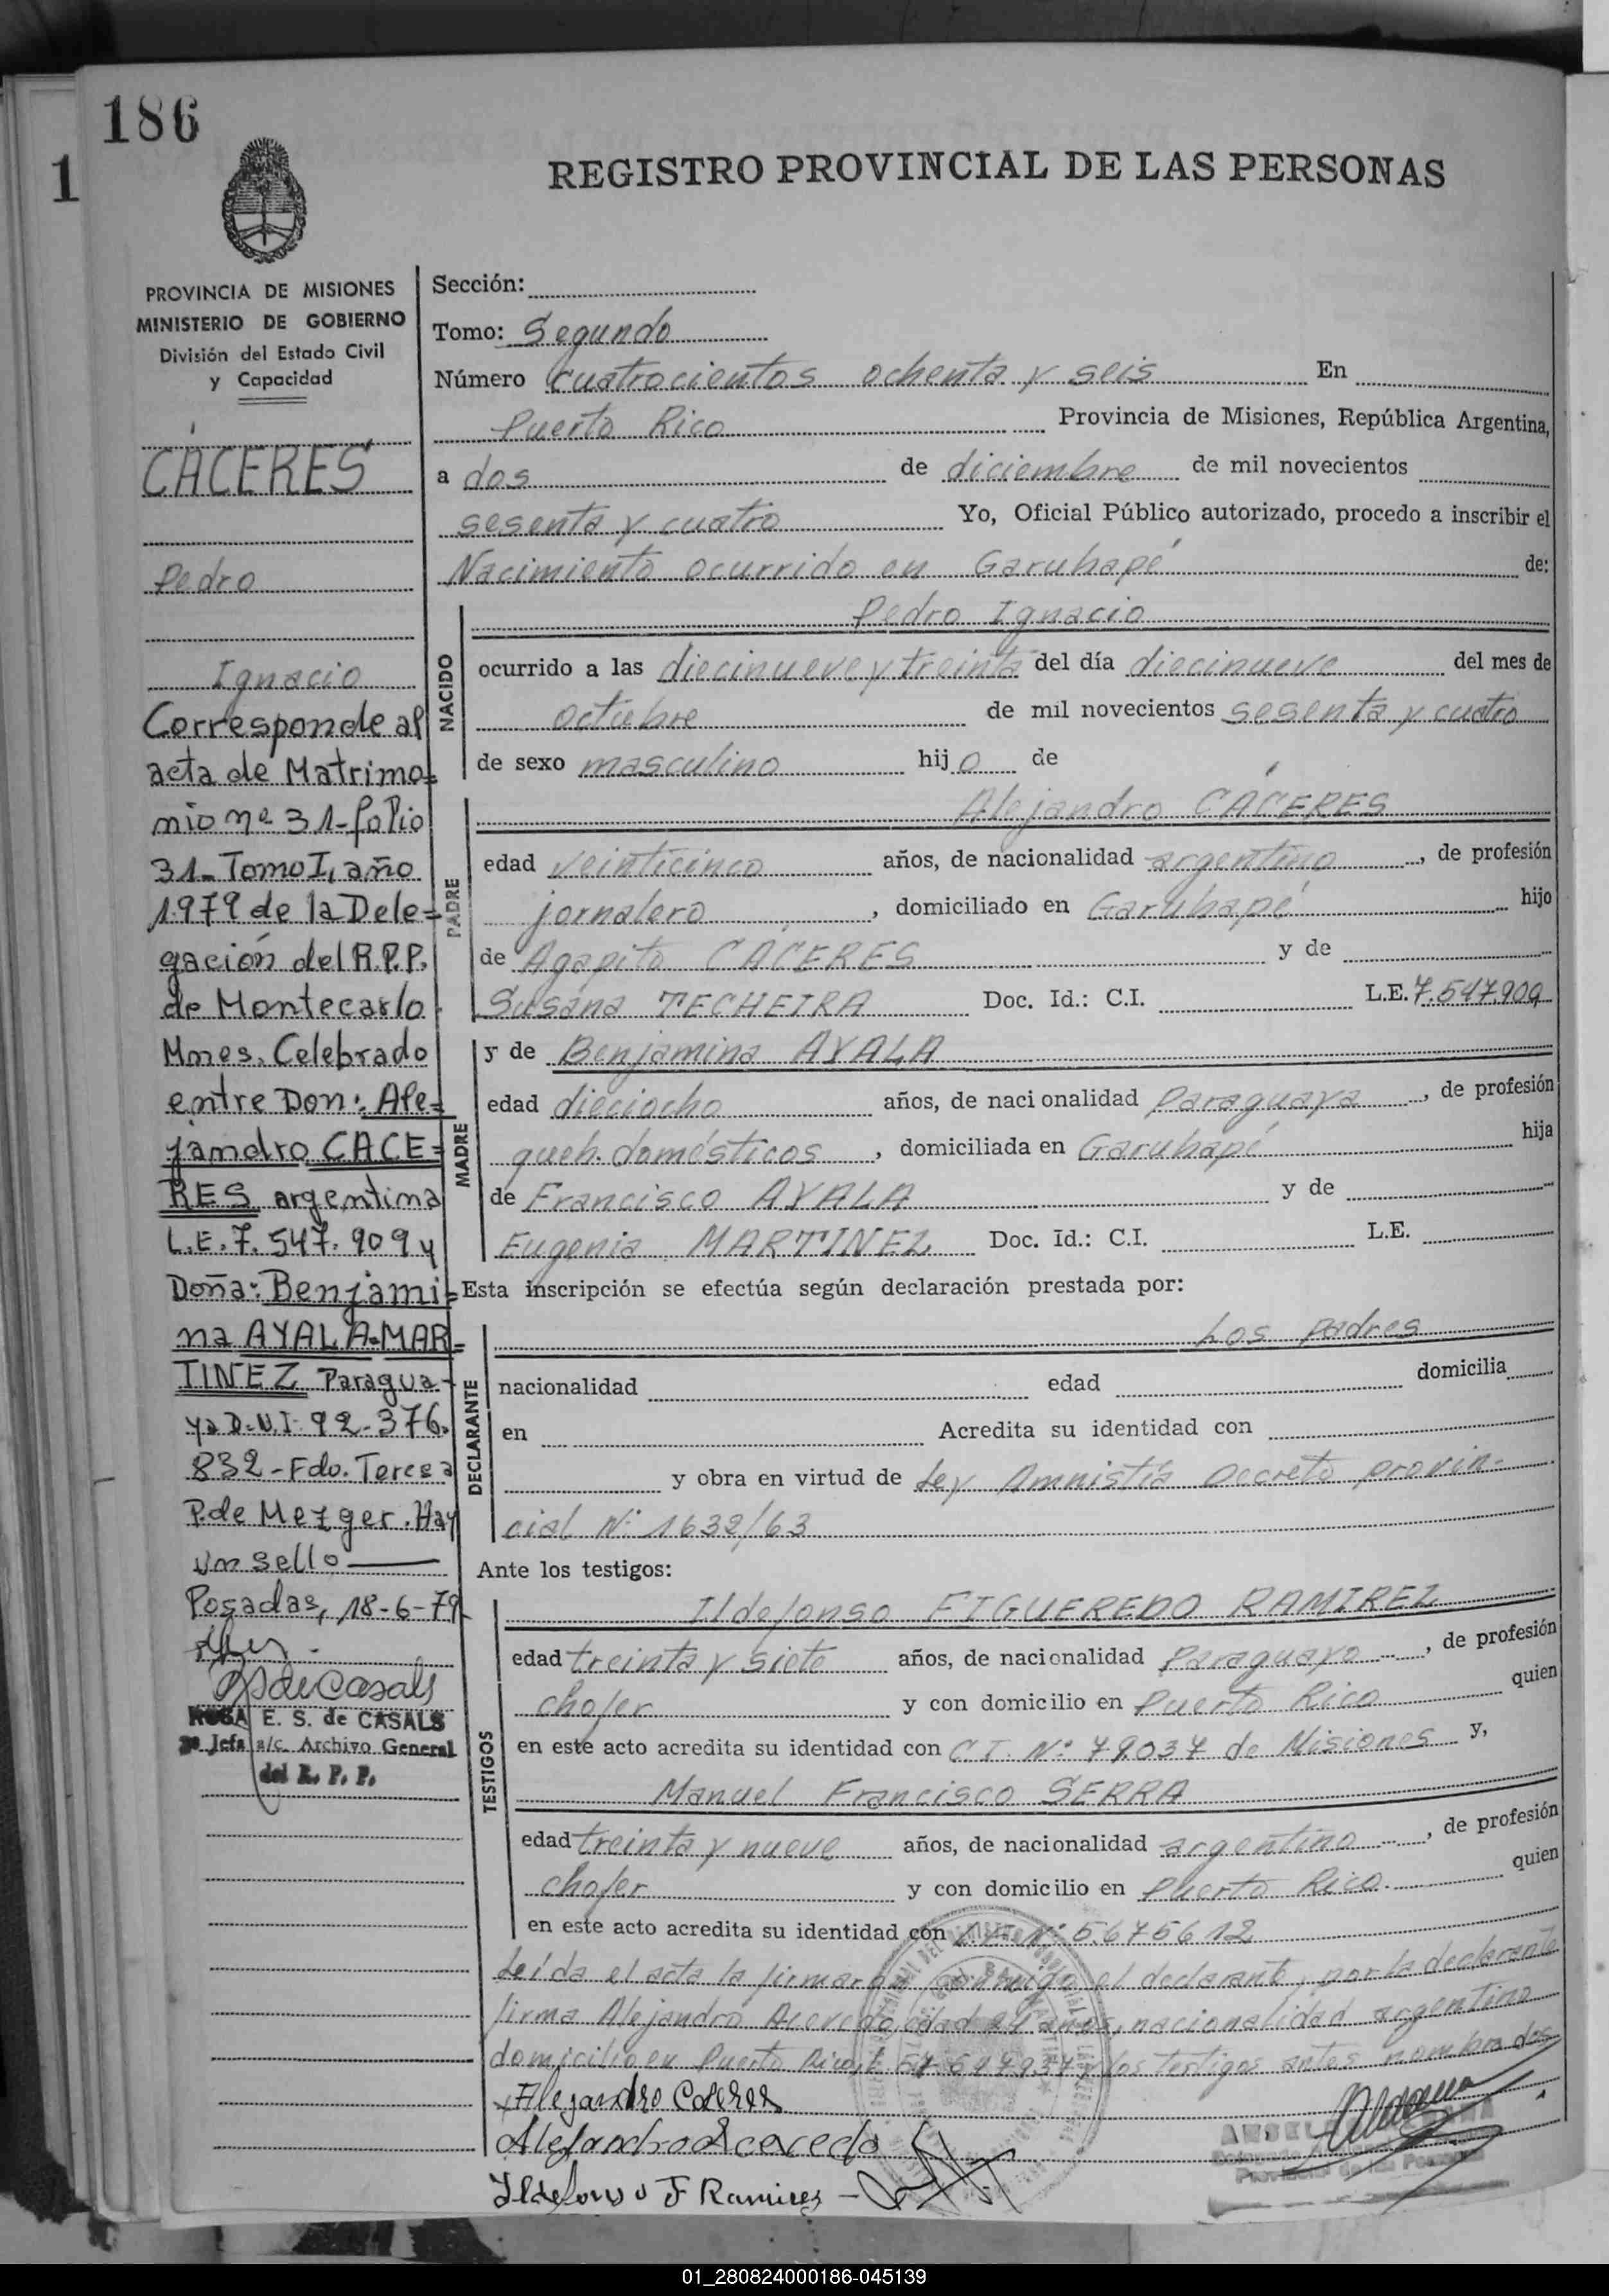 186
1
REGISTRO PROVINCIAL DE LAS PERSONAS
PROVINCIA DE MISIONES
MINISTERIO DE GOBIERNO
División del Estado Civil
y Capacidad
CÁCERES
Pedro
Ignacio
Corresponde al
acta de Matrimo=
nio nº 31-folio
31-Tomo I, año
1979 de la Dele=
gación del R.P.P.
de Montecarlo
Mnes. Celebrado
entre Don: Ale=
jandro CACE=
RES argentina
L.E. 7.547.909 y
Doña: Benjami=
na AYALA=MAR=
TINEZ Paragua-
ya D.N.I. 92-376.
832-Fdo. Teresa
P. de Mezger. Hay
un sello
Posadas, 18-6-79
ROSA E. S. de CASALS
2ª Jefa a/c. Archivo General
del R. P. P.
Sección:
Tomo: Segundo
Número cuatrocientos ochenta y seis En
Puerto Rico Provincia de Misiones, República Argentina,
a dos de diciembre de mil novecientos
sesenta y cuatro Yo, Oficial Público autorizado, procedo a inscribir el
Nacimiento ocurrido en Garuhapé de:
NACIDO
Pedro Ignacio
ocurrido a las diecinueve y treinta del día diecinueve del mes de
octubre de mil novecientos sesenta y cuatro
de sexo masculino hij o de
PADRE
Alejandro CÁCERES
edad veinticinco años, de nacionalidad argentino, de profesión
jornalero, domiciliado en Garuhapé hijo
de Agapito CÁCERES y de
Susana TECHEIRA Doc. Id.: C.I. L.E. 7.547.909
MADRE
y de Benjamina AYALA
edad dieciocho años, de nacionalidad Paraguaya, de profesión
queh. domésticos, domiciliada en Garuhapé hija
de Francisco AYALA y de
Eugenia MARTINEZ Doc. Id.: C.I. L.E.
Esta inscripción se efectúa según declaración prestada por:
DECLARANTE
Los padres
nacionalidad edad domicilia
en Acredita su identidad con
y obra en virtud de Ley Amnistía Decreto provin-
cial Nº 1632/63
Ante los testigos:
TESTIGOS
Ildefonso FIGUEREDO RAMIREZ
edad treinta y siete años, de nacionalidad Paraguayo, de profesión
chofer y con domicilio en Puerto Rico quien
en este acto acredita su identidad con C.I. Nº 79.037 de Misiones y,
Manuel Francisco SERRA
edad treinta y nueve años, de nacionalidad argentino, de profesión
chofer y con domicilio en Puerto Rico. quien
en este acto acredita su identidad con Nº 5.675612
Leída el acta la firmaran conmigo el declarante, por la declarante
firma Alejandro Acevedo, edad años, nacionalidad argentino
domicilio en Puerto Rico, y los testigos antes nombrados
Alejandro Caceres
Alejandro Acevedo
Ildefonso F Ramirez
01_280824000186-045139